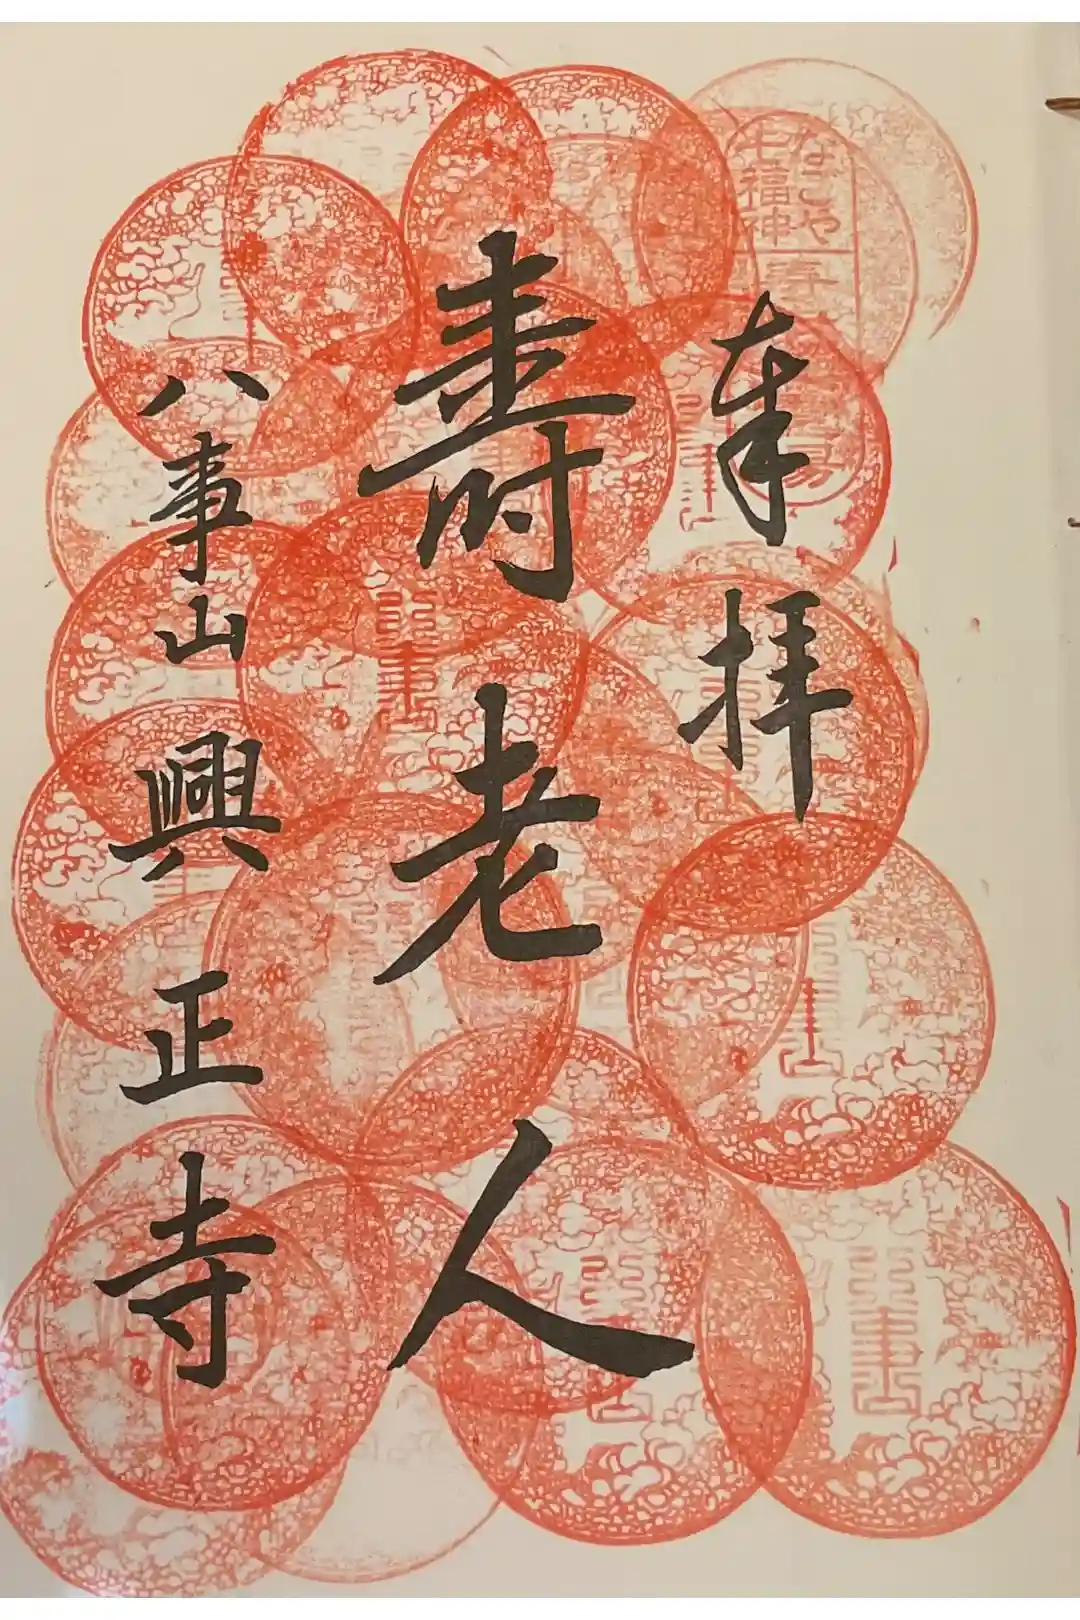 奉拝
なごや
七福神
寿老人
八事山興正寺